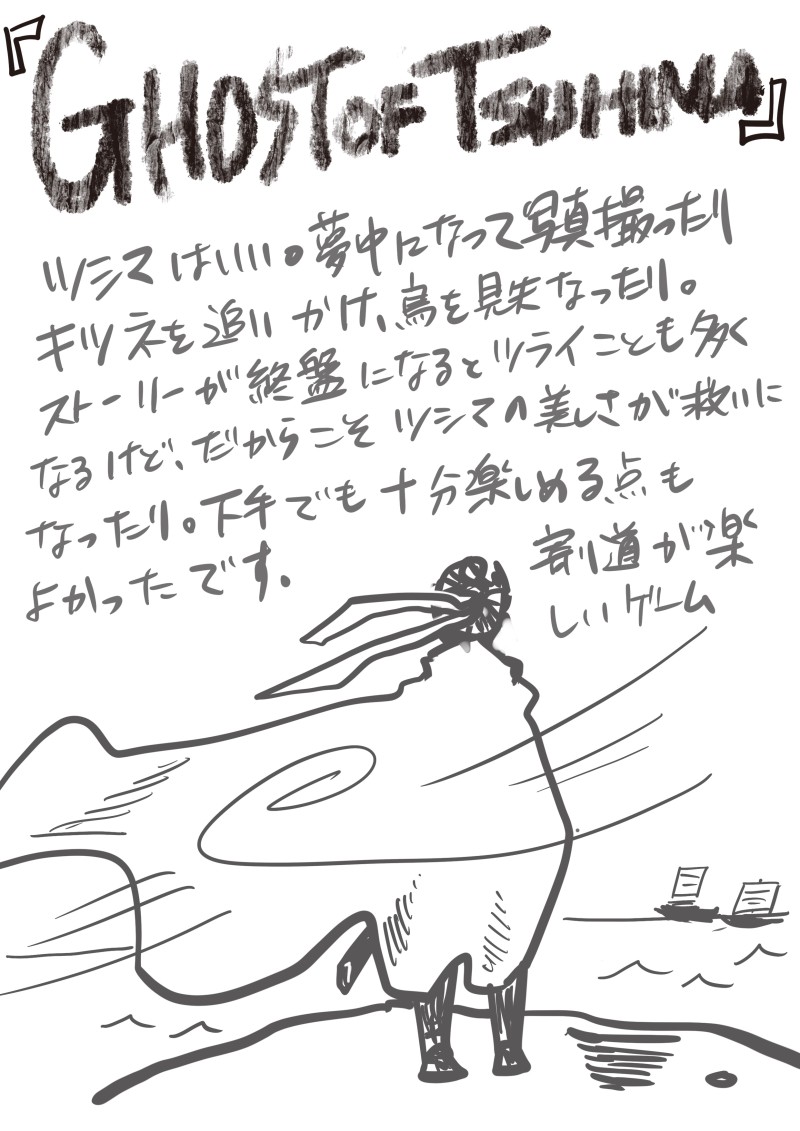 『GHOST OF TSUSHIMA』
ツシマはいい。夢中になって写真撮ったり
キツネを追いかけ、鳥を見失なったり。
ストーリーが終盤になるとツライことも多く
なるけど、だからこそツシマの美しさが救いに
なったり。下手でも十分楽しめる点も
よかったです。
寄り道が楽
しいゲーム